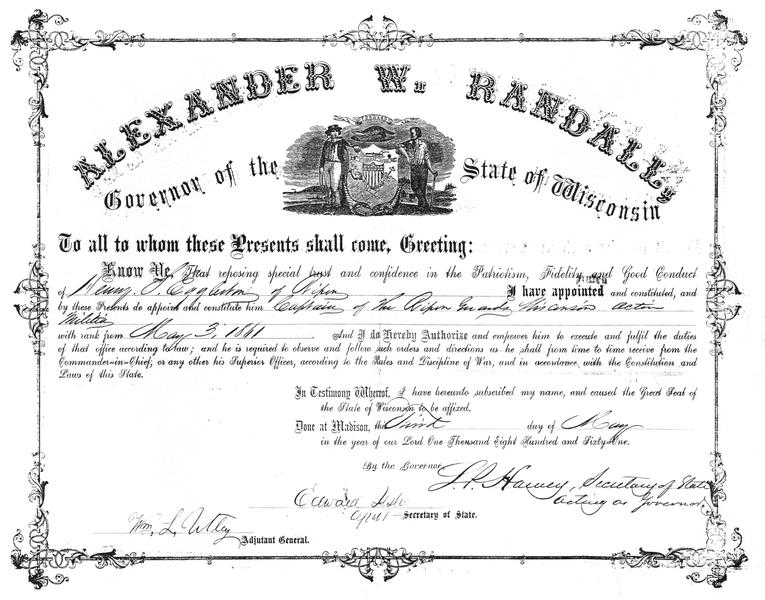 FORWARD
ALEXANDER W. RANDALL,
Governor of the State of Wisconsin
To all to whom these Presents shall come, Greeting:
Know Ye, That reposing special trust and confidence in the Patriotism, Fidelity and Good Conduct
of Henry S. Eggleston of Ripon I have appointed and constituted, and
by these Presents do appoint and constitute him Captain of the Ripon Guards, Wisconsin Active
Militia
with rank from May 3, 1861 And I do Hereby Authorize and empower him to execute and fulfil the duties
of that office according to law; and he is required to observe and follow such orders and directions as he shall from time to time receive from the
Commander-in-Chief, or any other his Superior Officer, according to the Rules and Discipline of War, and in accordance with the Constitution and
Laws of this State.
In Testimony Whereof, I have hereunto subscribed my name, and caused the Great Seal of
the State of Wisconsin to be affixed.
Done at Madison, this Third day of May
in the year of our Lord One Thousand Eight Hundred and Sixty-One.
By the Governor
L. P. Harvey, Secretary of State
acting as Governor
Edward
Secretary of State.
Wm. L. Utley
Adjutant General.